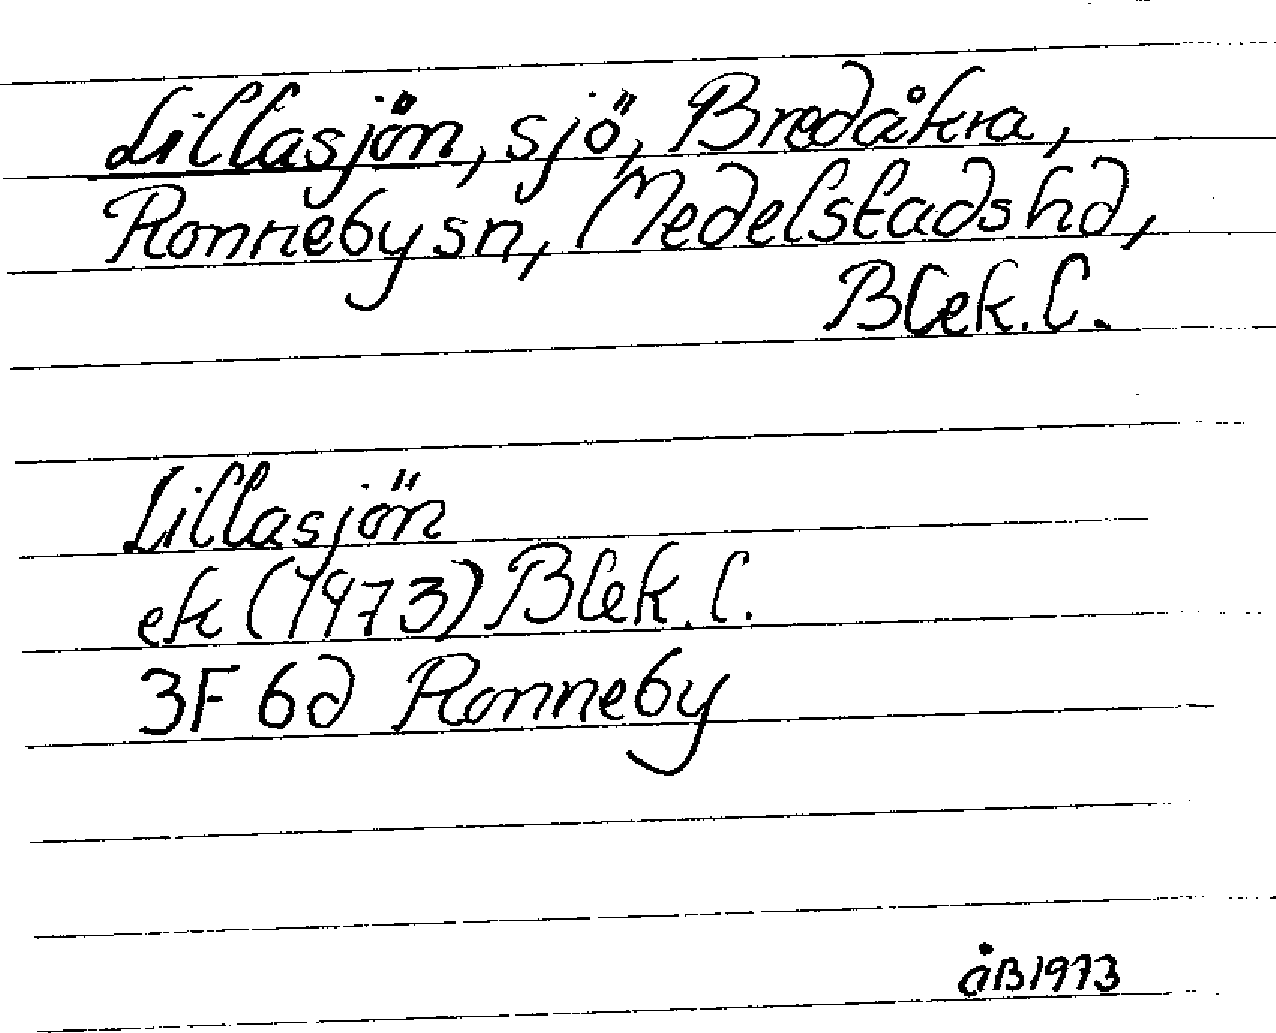 Lillasjön, sjö, Bredåkra,
Ronneby sn, Medelstads hd,
Blek. l.
Lillasjön
ek (1973) Blek. l.
3F 6d Ronneby
åB 1973